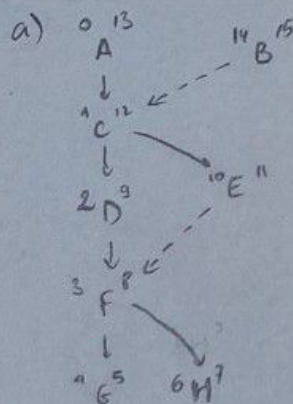 a) 0 A 13
14 B 15
1 C 12
10 E 11
2 D 9
3 F 8
4 G 5
6 H 7